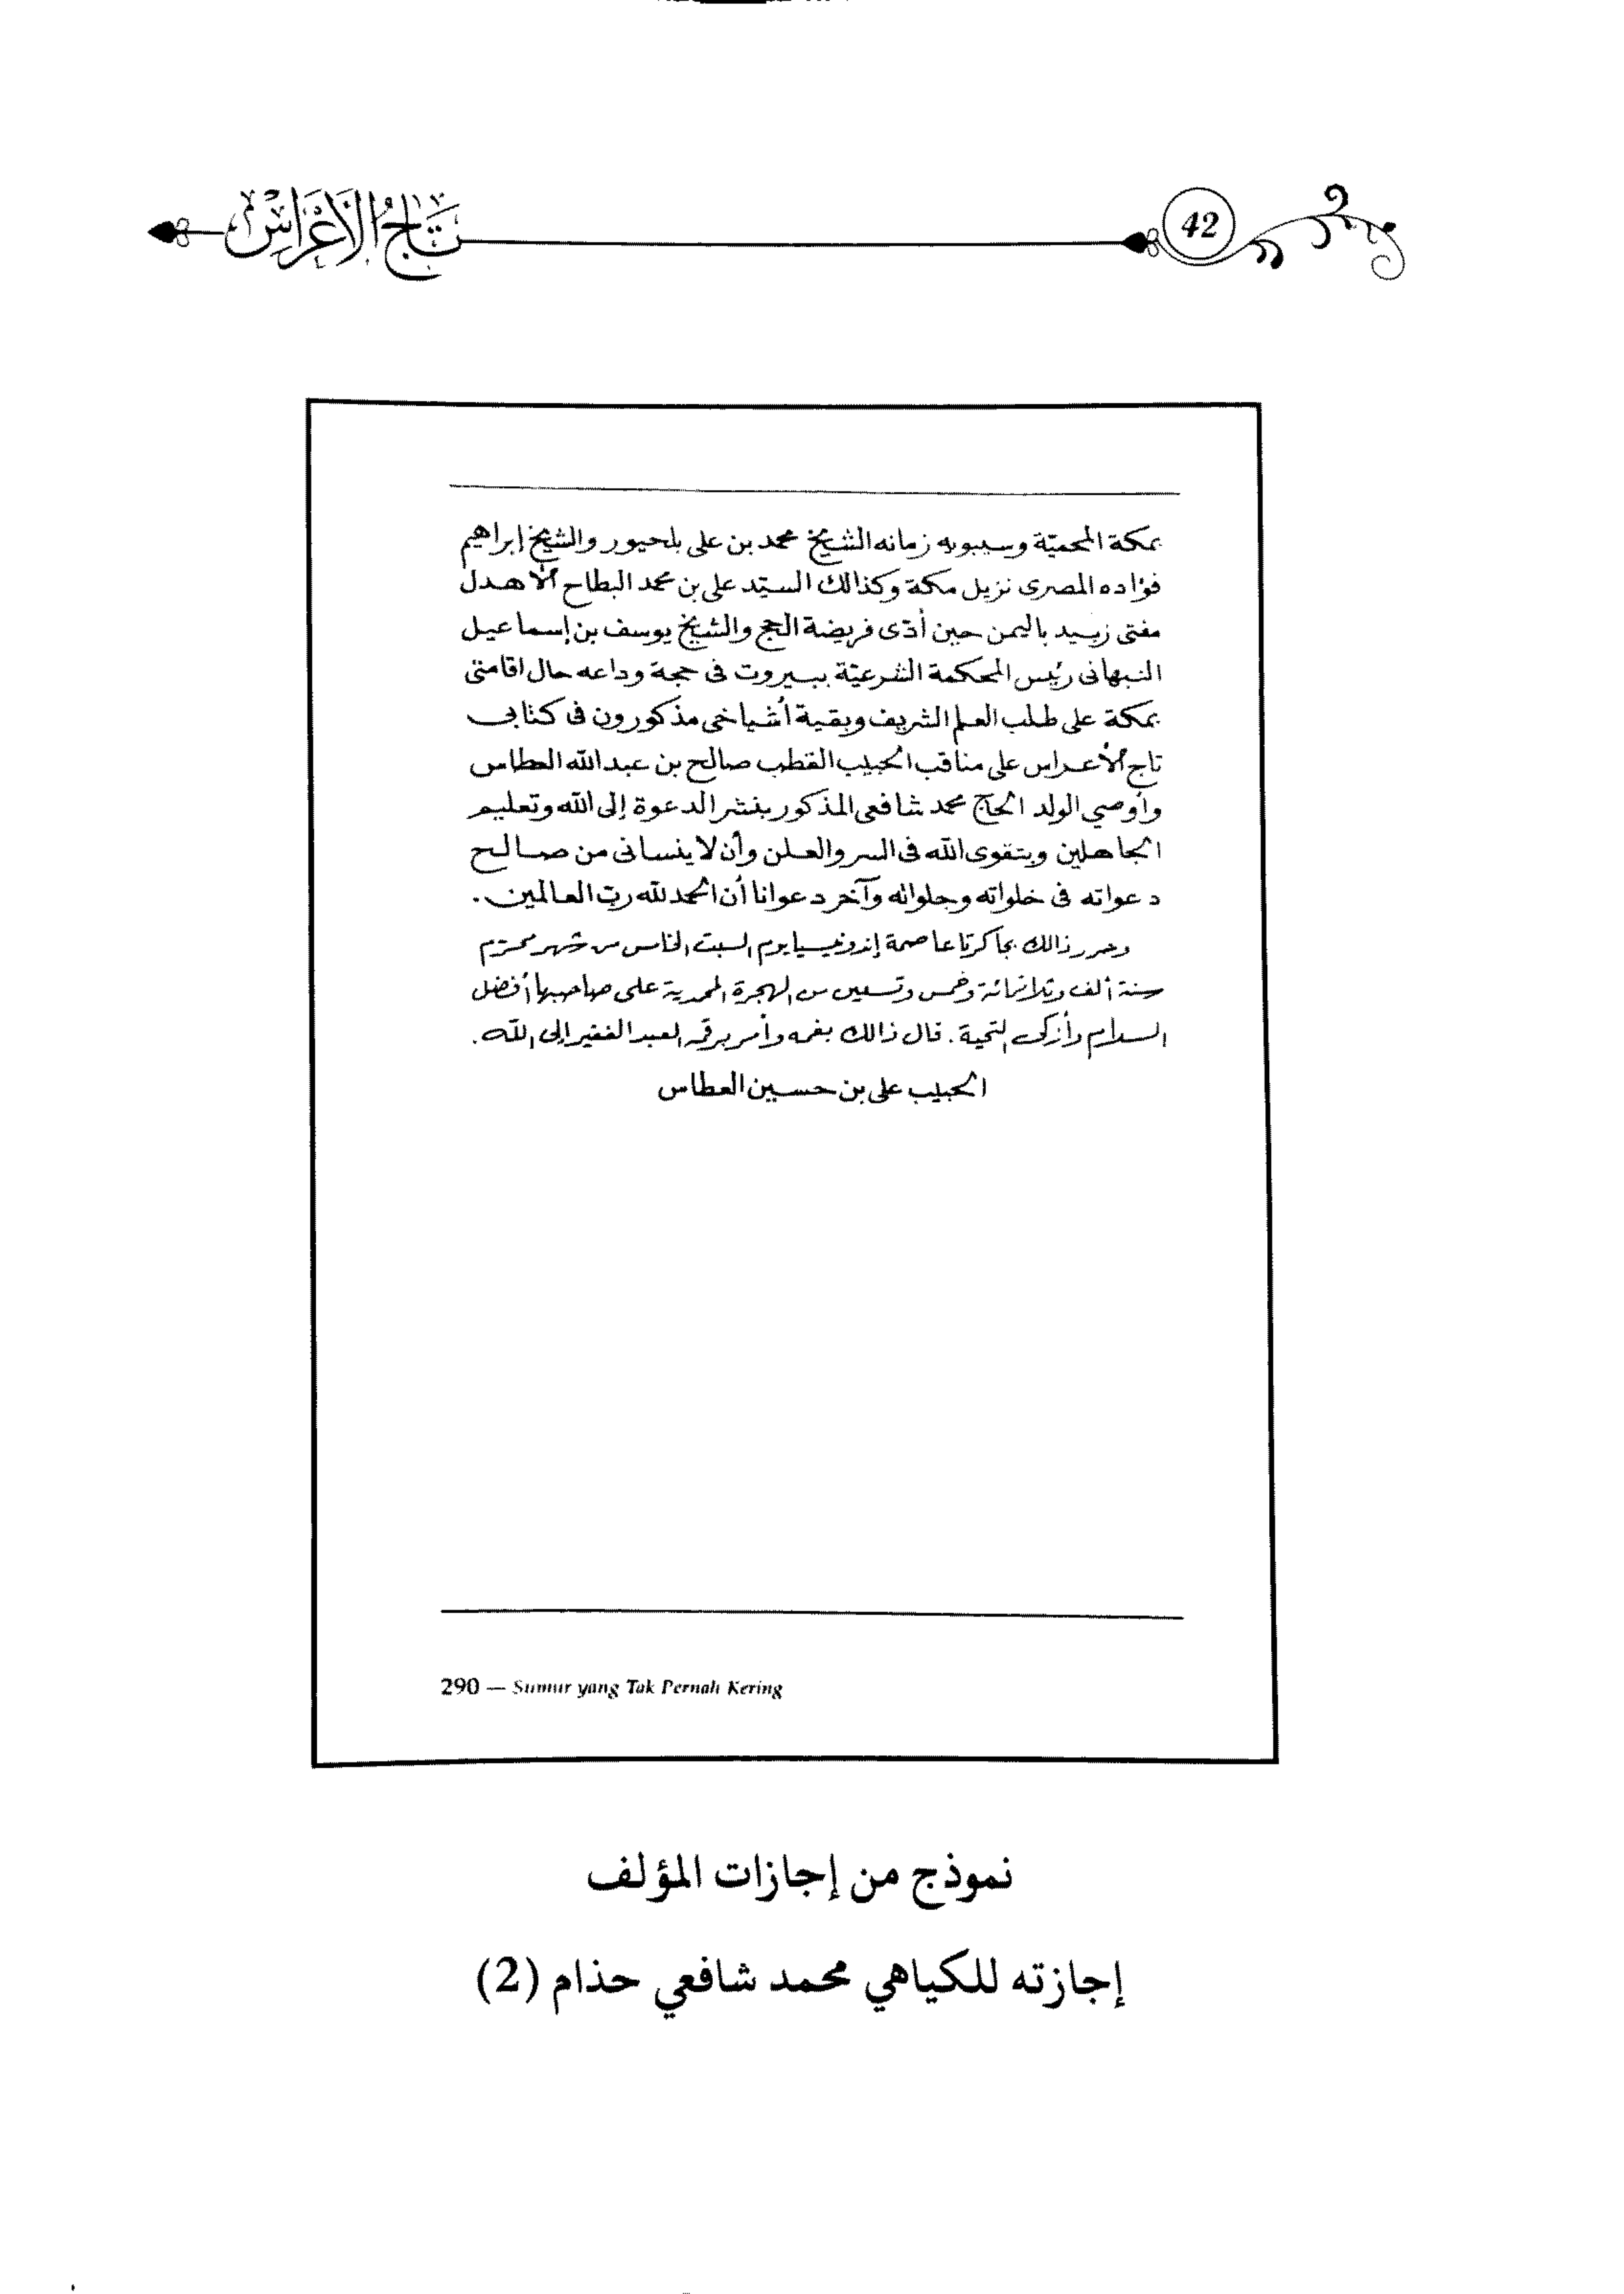 تَاجُ الْأَعْرَاسِ
42
بمكة المحميّة وسيبويه زمانه الشيخ محمد بن على بلحيور والشيخ إبراهيم
فؤاده المصرى نزيل مكة وكذالك السيّد على بن محمد البطاح الأهدل
مفتى زبيد باليمن حين أدّى فريضة الحج والشيخ يوسف بن إسماعيل
النبهانى رئيس المحكمة الشرعيّة ببيروت فى حجة وداعه حال اقامتى
بمكة على طلب العلم الشريف وبقية أشياخى مذكورون فى كتابى
تاج الأعراس على مناقب الحبيب القطب صالح بن عبدالله العطاس
وأوصي الولد الحاج محمد شافعى المذكور بنشر الدعوة إلى الله وتعليم
الجاهلين وبتقوى الله فى السر والعلن وأن لا ينسانى من صالح
دعواته فى خلواته وجلواته وآخر دعوانا أن الحمد لله ربّ العالمين .
وحرر ذالك بجاكرتا عاصمة إندونيسيا يوم السبت الخامس من شهر محرم
سنة ألف وثلاثمائة وخمس وتسعين من الهجرة المحمدية على صاحبها أفضل
السلام وأزكى التحية . قال ذالك بفمه وأمر برقمه العبد الفقير إلى الله .
الحبيب على بن حسين العطاس
290 — Sumur yang Tak Pernah Kering
نموذج من إجازات المؤلف
إجازته للكياهي محمد شافعي حذام (2)